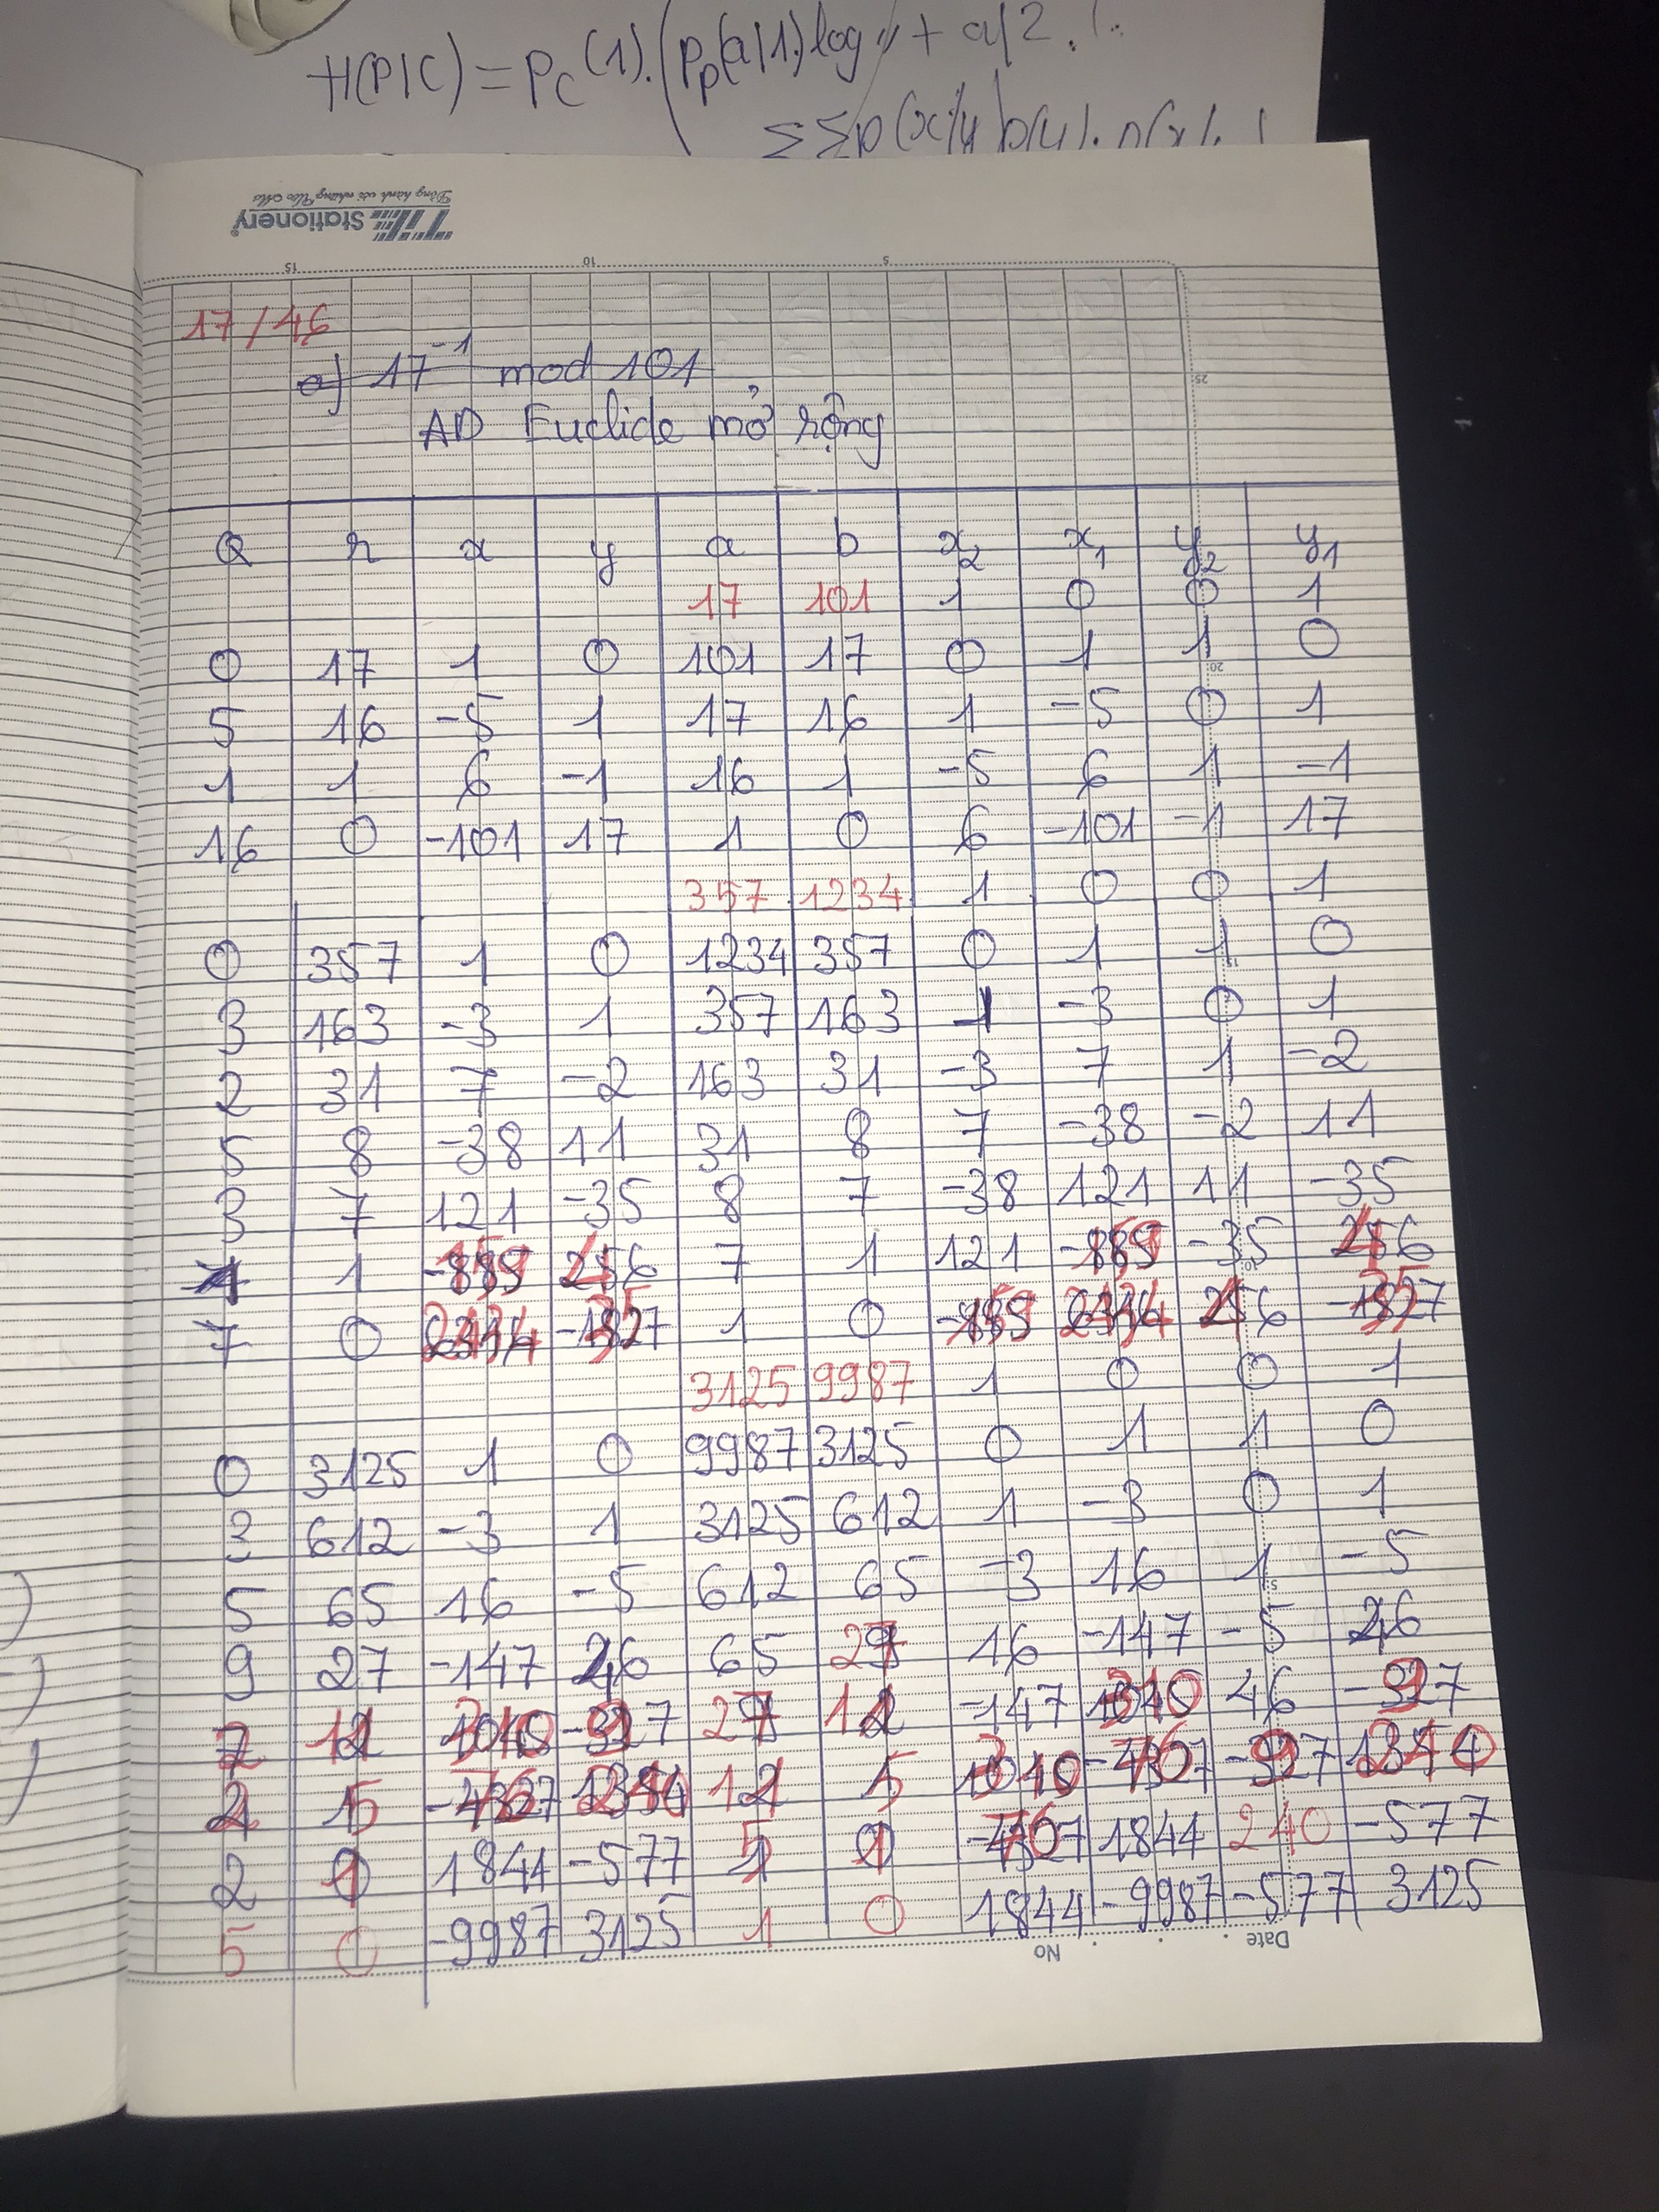 H(P|C) = P_C(1).(P_P(a|1)log
ΣΣp(x|y)
TL Stationery
Đồng hành với những Ước Mơ
15 10 5
17/46
a) 17⁻¹ mod 101
AD Euclide mở rộng
25
Q r x y a b x₂ x₁ y₂ y₁
17 101 1 0 0 1
0 17 1 0 101 17 0 1 1 0
20
5 16 -5 1 17 16 1 -5 0 1
1 1 6 -1 16 1 -5 6 1 -1
16 0 -101 17 1 0 6 -101 -1 17
357 1234 1 0 0 1
0 357 1 0 1234 357 0 1 1 0
15
3 163 -3 1 357 163 1 -3 0 1
2 31 7 -2 163 31 -3 7 1 -2
5 8 -38 11 31 8 7 -38 -2 11
3 7 121 -35 8 7 -38 121 11 -35
1 1 -159 46 7 1 121 -159 -35 46
7 0 1 0
3125 9987 1 0 0 1
0 3125 1 0 9987 3125 0 1 1 0
3 612 -3 1 3125 612 1 -3 0 1
5 65 16 -5 612 65 -3 16 1 -5
5
9 27 -147 46 65 27 16 -147 -5 46
2 11 310 -97 27 11 -147 310 46 -97
2 5 -767 240 11 5 310 -767 -97 240
2 1 1844 -577 5 1 -767 1844 240 -577
5 0 -9987 3125 1 0 1844 -9987 -577 3125
No . . . Date